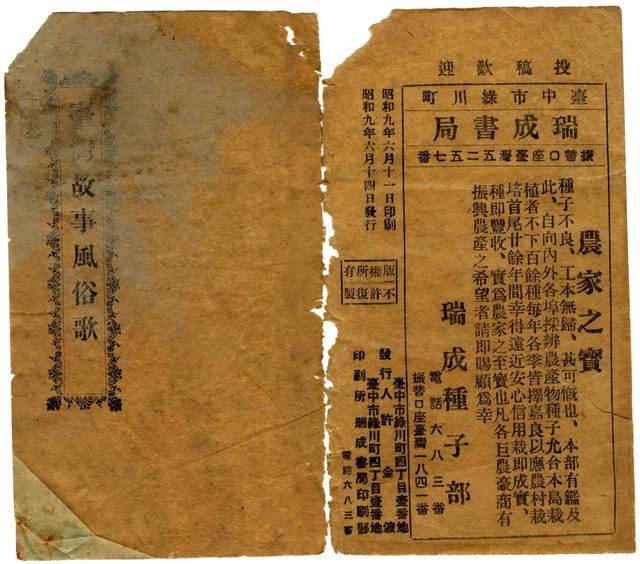 投稿歡迎
臺中市綠川町
瑞成書局
振替口座臺灣五二五七番
農家之寶
種子不良、工本無歸、甚可慨也、本部有鑑及
此、自向內外各埠採辨農產物種子允合本島栽
植者不下百餘種每年各季皆擇嘉良以應農村栽
培首尾廿餘年間幸得遠近安心信用栽即成實、
種即豐收、實爲農家之至寶也凡各巨農豪商有
振興農產之希望者請即賜顧爲幸
瑞成種子部
電話六八三番
振替口座臺灣一八四一番
昭和九年六月十一日印刷
昭和九年六月十四日發行
版權所有
不許復製
臺中市綠川町四丁目壹番地
發行人 許金波
臺中市綠川町四丁目壹番地
印刷所 瑞成書局印刷部
電話六八三番
故事風俗歌